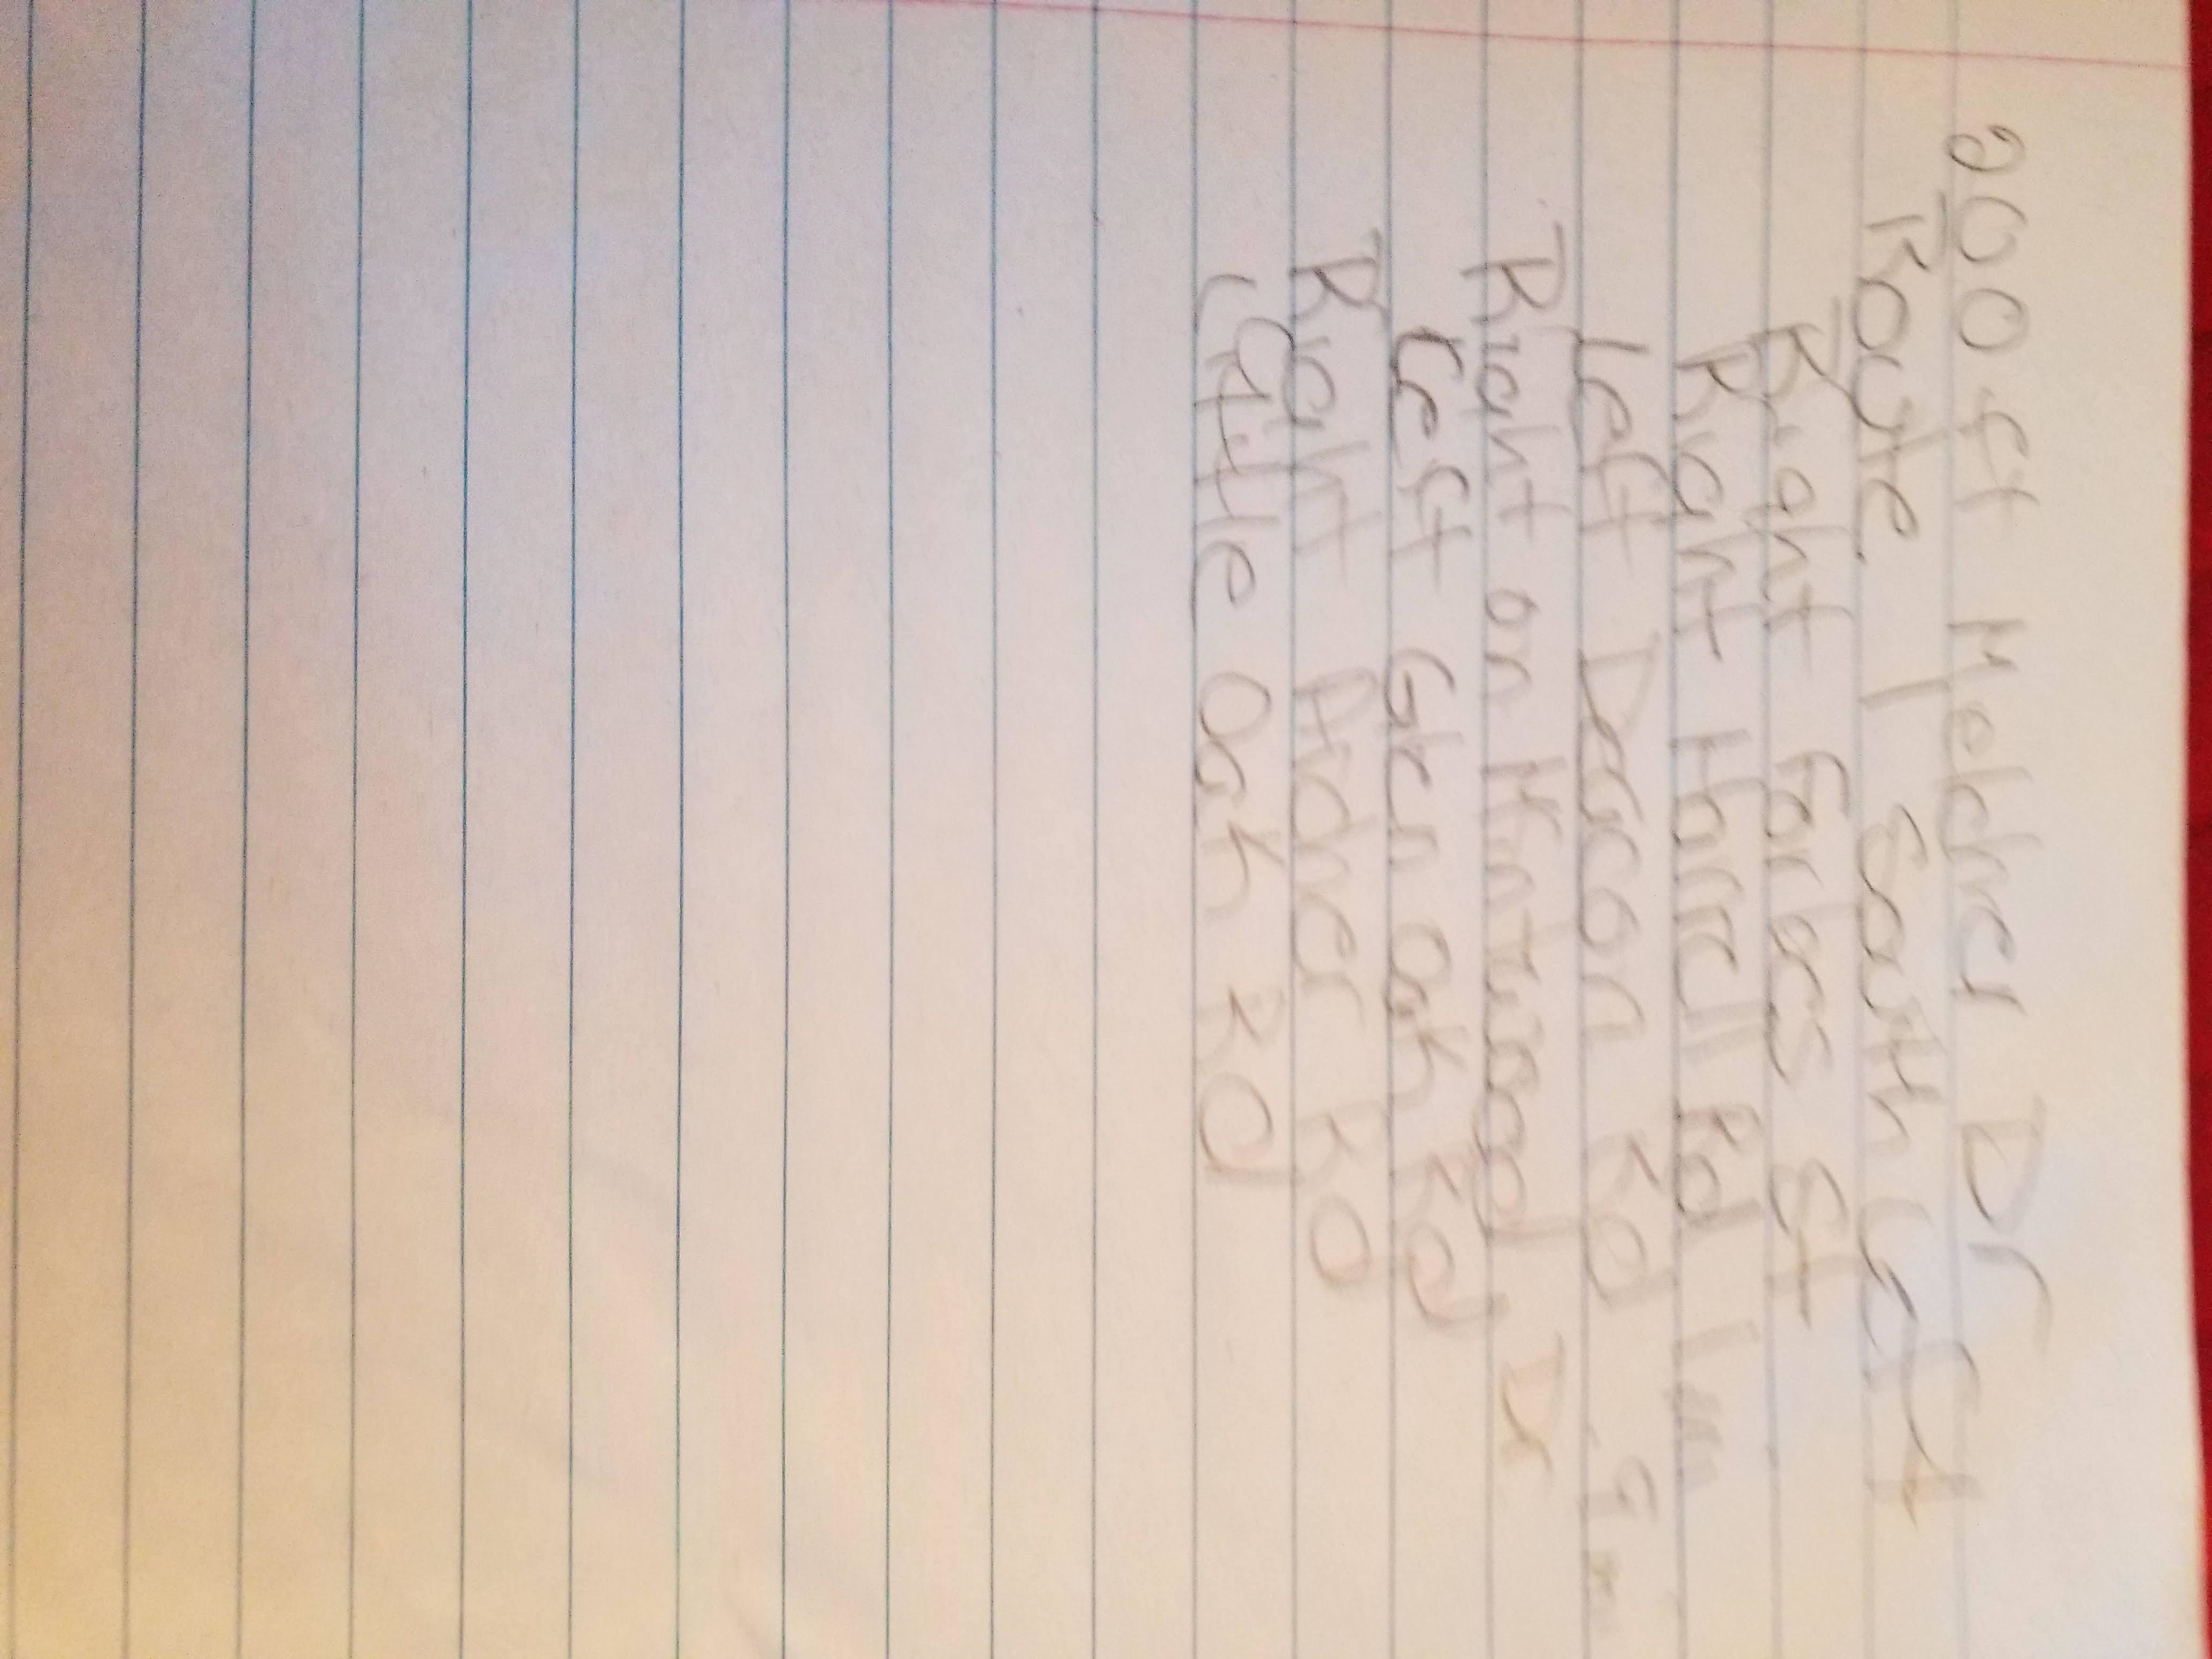 200 ft Melcher Dr
Route 1 South left
Right Forbes St
Right Harrell Rd 1 m
Left Deacon Rd
Right on Mintwood Dr
Left Glen Oak Rd
Right Archer Rd
Little Oak Rd